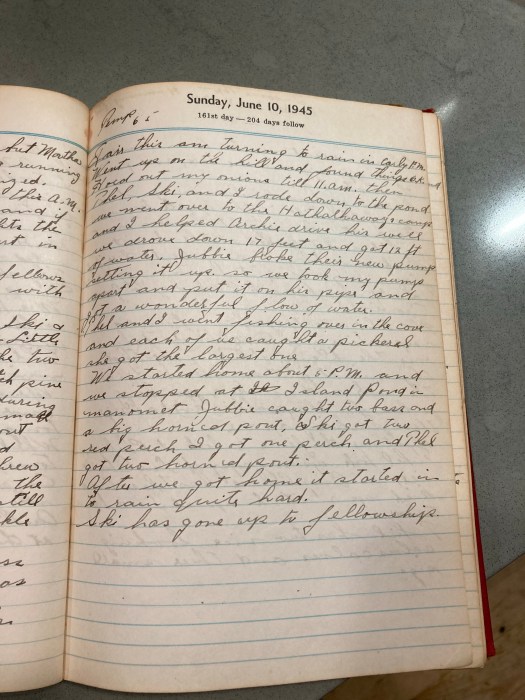 but Martha
running
ized.
this A.M.
and if
ats the
rt in
fellows
with
Ski &
Little
he two
ch pine
during
out
d
hrew
the
still
kle
Sunday, June 10, 1945
161st day — 204 days follow
Temp 65
Fair this am turning to rain in early P.M.
Went up on the hill and found things O.K.
Hoed out my onions till 11 a.m. then
Phel, Ski, and I rode down to the pond
we went over to the Hathaways camp
and I helped Archie drive his well
we drove down 17 feet and got 12 ft
of water. Jubbie broke their new pump
setting it up so we took my pump
apart and put it on his pipe and
got a wonderful flow of water.
Phel and I went fishing over in the cove
and each of us caught a pickerel
she got the largest one
We started home about 5 P.M. and
we stopped at Island Pond in
manomet Jubbie caught two bass and
a big horned pout, Ski got two
red perch I got one perch and Phel
got two horned pout.
After we got home it started in
to rain quite hard.
Ski has gone up to fellowship.